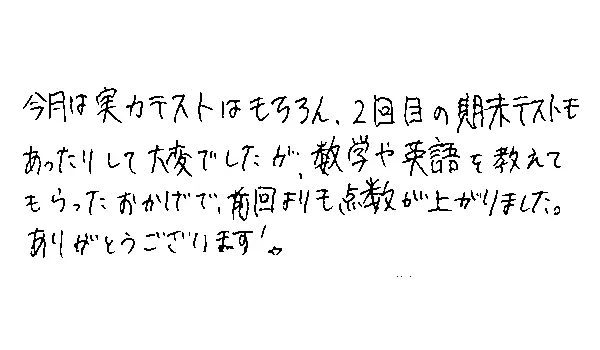 今月は実力テストはもちろん、2回目の期末テストも
あったりして大変でしたが、数学や英語を教えて
もらったおかげで、前回よりも点数が上がりました。
ありがとうございます!。